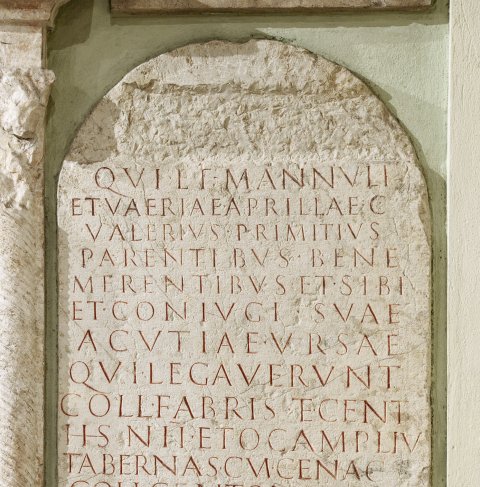 QVILT·MANNVLI
ETVAERIAEAPRILLAE·C
VALERIVS·PRIMITIVS
PARENTIBVS·BENE
MERENTIBVS·ET·SIBI
ET·CONIVGI·SVAE
ACVTIAE·VRSAE
QVILEGAVERVNT
COLLFABRIS
TABERNASCVMCENAC